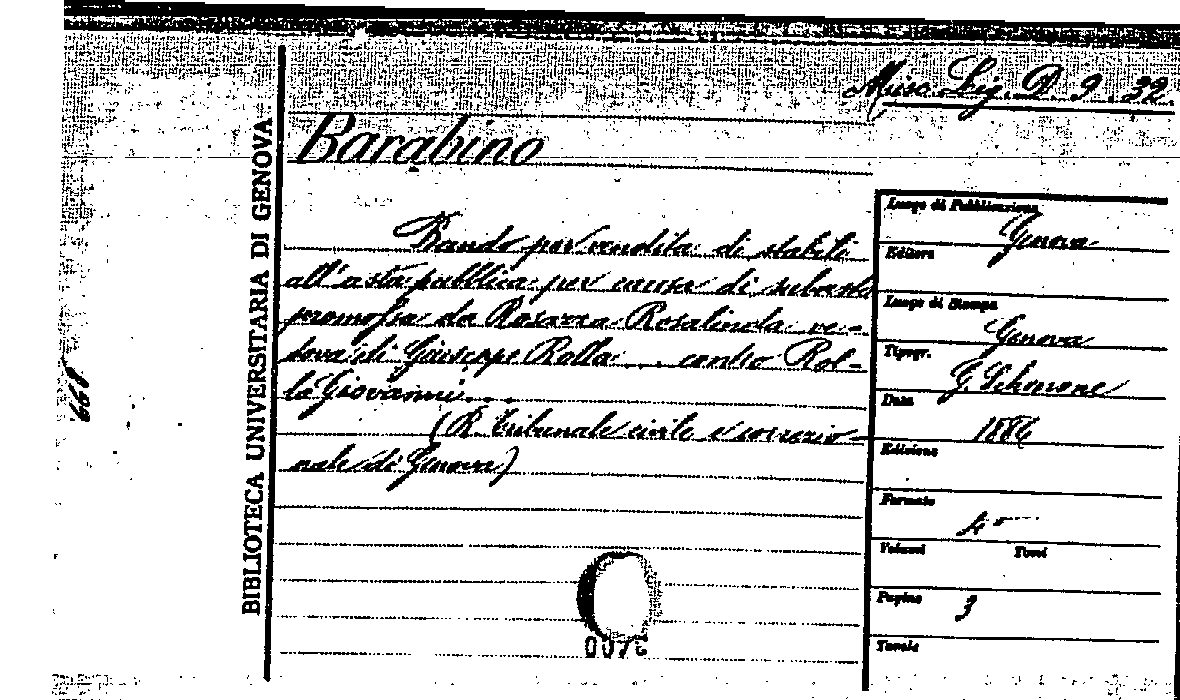 Misc. Lig. D. 9. 32.
Barabino
BIBLIOTECA UNIVERSITARIA DI GENOVA
Bando per vendita di stabili
all'asta pubblica per causa di subasta
promossa da Rosazza Rosalinda ve-
dova di Giuseppe Rolla ... contro Rol-
la Giovanni...
(R. Tribunale civile e correzio-
nale di Genova)
Luogo di Pubblicazione
Genova
Editore
Luogo di Stampa
Genova
Tipogr.
G. Schenone
Data
1886
Edizione
Formato
4°
Volumi Tomi
Pagine 3
Tavole